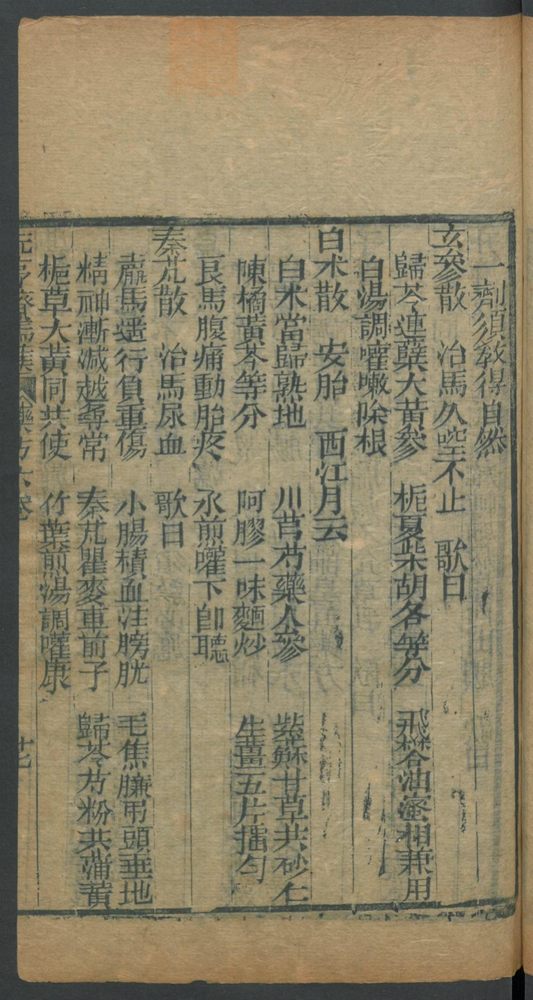 一劑須教得自然
玄參散　治馬久空不止　歌曰
歸芩連蘗大黃參　梔夏柴胡各等分　飛礬谷油蜜相兼用
白湯調嚾嗽除根
白朮散　安胎　西江月云
白朮當歸熟地　川芎芍藥人參　紫蘇甘草共砂仁
陳橘黃芩等分　阿膠一味麵炒　生薑五片擂勻
艮馬腹痛動胎疼　水煎嚾下即聽
秦艽散　治馬尿血　歌曰
羸馬遠行負重傷　小腸積血注膀胱　毛焦膁吊頭垂地
精神漸減越尋常　秦艽瞿麥車前子　歸芩芍粉共蒲黃
梔草大黃同共使　竹葉煎湯調嚾康
元亨療馬集　六卷　十七